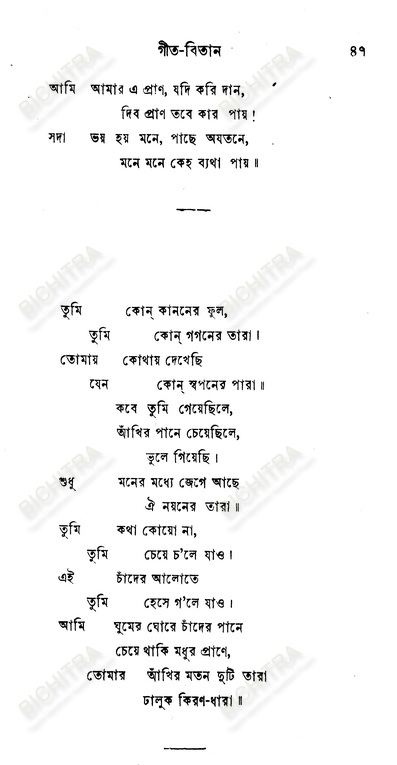 গীত-বিতান ৪৭
আমি আমার এ প্রাণ, যদি করি দান,
দিব প্রাণ তবে কার পায়!
সদা ভয় হয় মনে, পাছে অযতনে,
মনে মনে কেহ ব্যথা পায়॥
তুমি কোন্ কাননের ফুল,
তুমি কোন্ গগনের তারা।
তোমায় কোথায় দেখেছি
যেন কোন্ স্বপনের পারা॥
কবে তুমি গেয়েছিলে,
আঁখির পানে চেয়েছিলে,
ভুলে গিয়েছি।
শুধু মনের মধ্যে জেগে আছে
ঐ নয়নের তারা॥
তুমি কথা কোয়ো না,
তুমি চেয়ে চ'লে যাও।
এই চাঁদের আলোতে
তুমি হেসে গ'লে যাও।
আমি ঘুমের ঘোরে চাঁদের পানে
চেয়ে থাকি মধুর প্রাণে,
তোমার আঁখির মতন দুটি তারা
ঢালুক কিরণ-ধারা॥
BICHITRA
BICHITRA
BICHITRA
BICHITRA
BICHITRA
BICHITRA
BICHITRA
BICHITRA